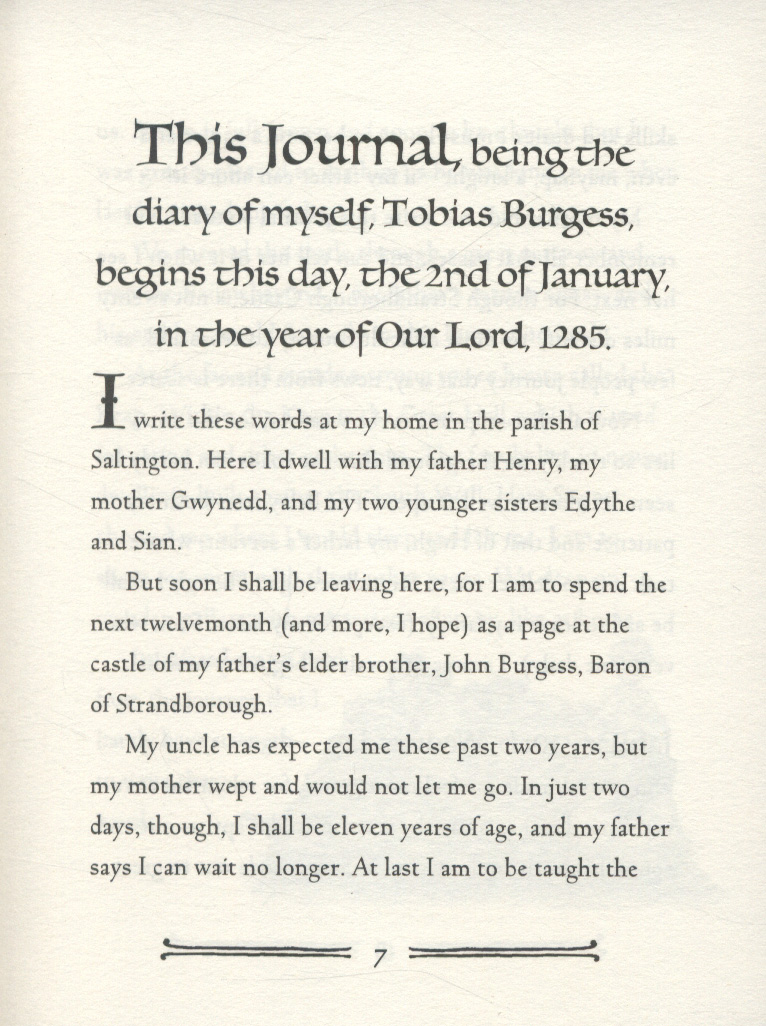 This Journal, being the
diary of myself, Tobias Burgess,
begins this day, the 2nd of January,
in the year of Our Lord, 1285.
I write these words at my home in the parish of
Saltington. Here I dwell with my father Henry, my
mother Gwynedd, and my two younger sisters Edythe
and Sian.
But soon I shall be leaving here, for I am to spend the
next twelvemonth (and more, I hope) as a page at the
castle of my father's elder brother, John Burgess, Baron
of Strandborough.
My uncle has expected me these past two years, but
my mother wept and would not let me go. In just two
days, though, I shall be eleven years of age, and my father
says I can wait no longer. At last I am to be taught the
7